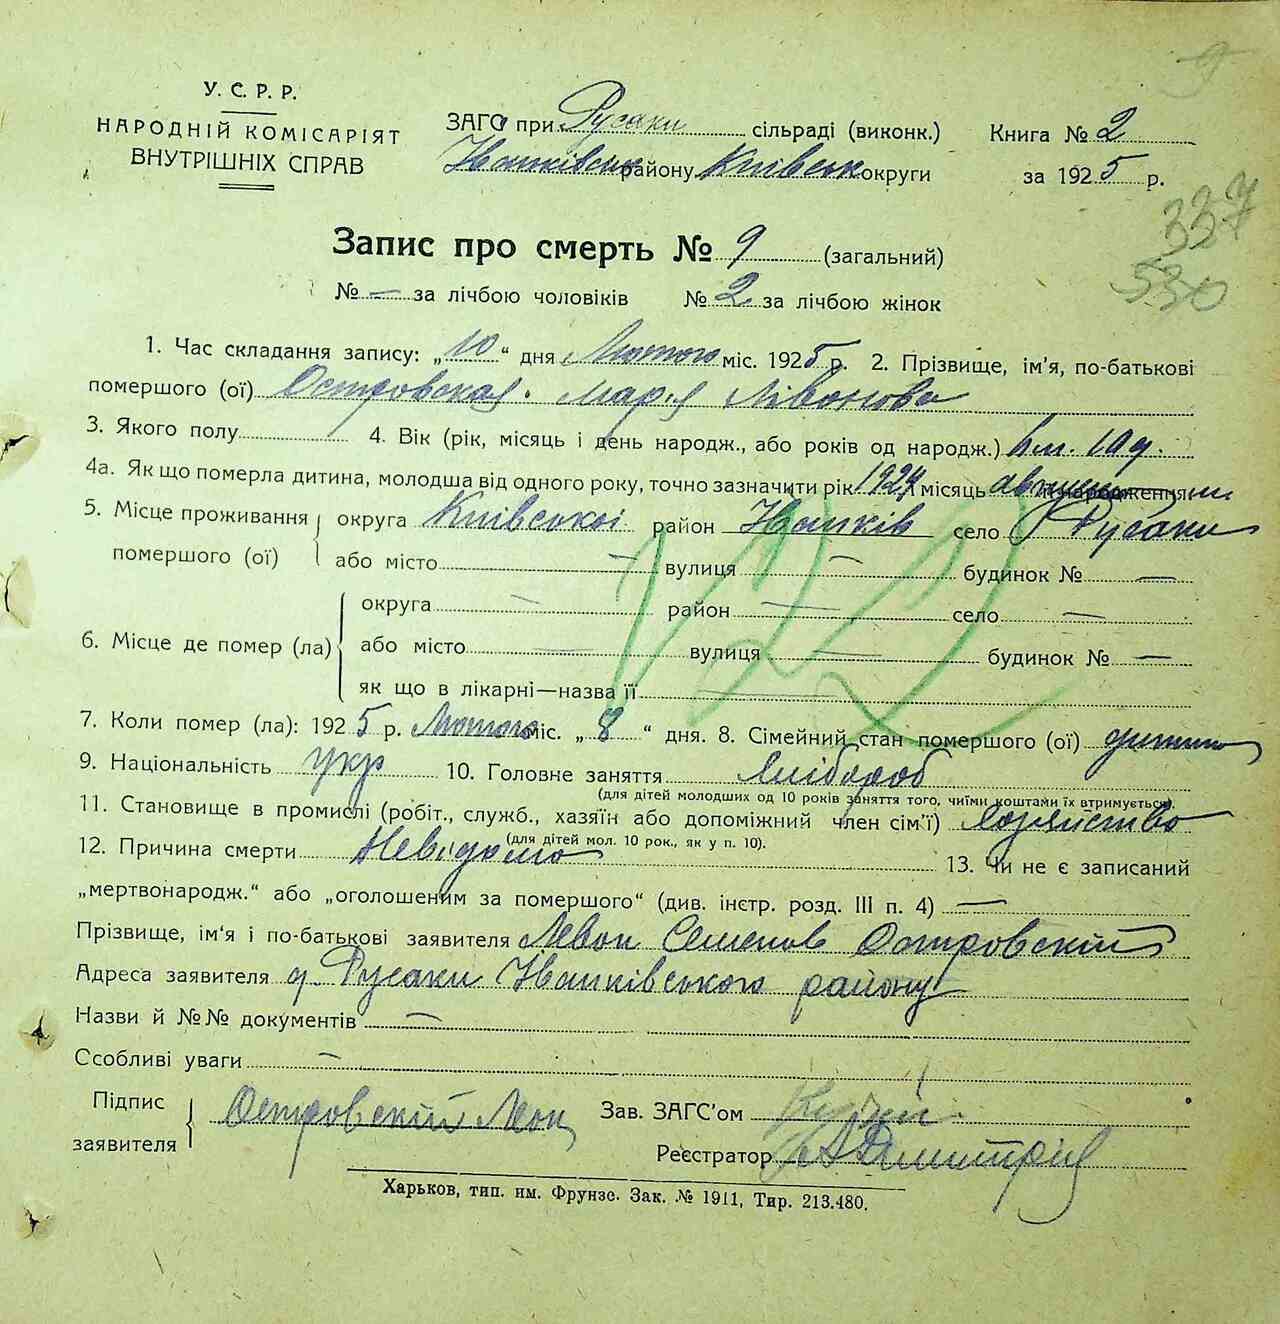 9
У. С. Р. Р.
НАРОДНІЙ КОМІСАРІЯТ
ВНУТРІШНІХ СПРАВ
ЗАГС при Русаки сільраді (виконк.)
району Київськ округи
Книга № 2
за 1925 р.
337
530
Запис про смерть № 9 (загальний)
№ — за лічбою чоловіків № 2 за лічбою жінок
1. Час складання запису: „10“ дня Лютого міс. 1925 р. 2. Прізвище, ім'я, по-батькові
помершого (ої) Островская Марія Лівонова
3. Якого полу 4. Вік (рік, місяць і день народж., або років од народж.)
4а. Як що померла дитина, молодша від одного року, точно зазначити рік 1924 місяць народження
5. Місце проживання помершого (ої) округа Київської район Іванків село Русаки
або місто — вулиця — будинок № —
6. Місце де помер (ла) округа — район — село —
або місто — вулиця — будинок № —
як що в лікарні—назва її —
122
7. Коли помер (ла): 1925 р. Лютого міс. „8“ дня. 8. Сімейний стан помершого (ої) дитина
9. Національність укр 10. Головне заняття хлібороб
(для дітей молодших од 10 років заняття того, чиїми коштами їх втримується).
11. Становище в промислі (робіт., служб., хазяїн або допоміжний член сім'ї) хозяйство
(для дітей мол. 10 рок., як у п. 10).
12. Причина смерти Невідомо 13. Чи не є записаний
„мертвонародж.“ або „оголошеним за помершого“ (див. інстр. розд. III п. 4) —
Прізвище, ім'я і по-батькові заявителя Левон Семенов Островскій
Адреса заявителя д. Русаки Іванківського району
Назви й №№ документів —
Особливі уваги —
Підпис заявителя Островскій Леон
Зав. ЗАГС'ом
Реєстратор Димитрів
Харьков, тип. им. Фрунзе. Зак. № 1911, Тир. 213.480.